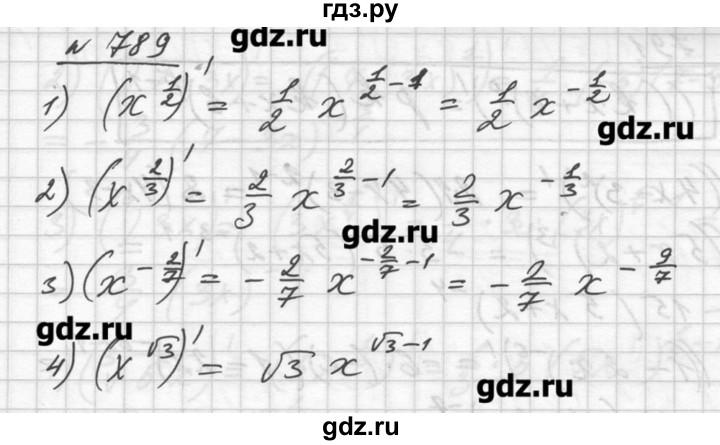 гдз.ру
gdz.ru
№ 789
1) (x^{1/2})' = 1/2 x^{1/2 - 1} = 1/2 x^{-1/2}
gdz.ru
2) (x^{2/3})' = 2/3 x^{2/3 - 1} = 2/3 x^{-1/3}
gdz.ru
3) (x^{-2/7})' = -2/7 x^{-2/7 - 1} = -2/7 x^{-9/7}
gdz.ru
4) (x^{√3})' = √3 x^{√3 - 1}
gdz.ru
gdz.ru